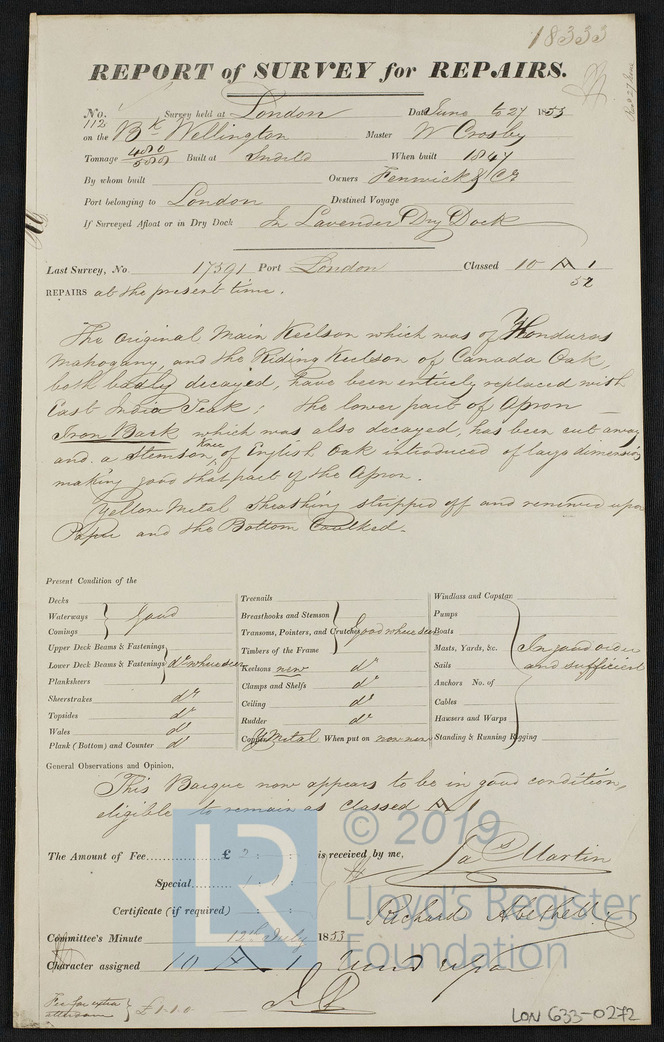 18333
REPORT of SURVEY for REPAIRS.
No. 112 Survey held at London Date June to 27 1853
on the Bk Wellington Master W Crosby
Tonnage 480/588 Built at When built 1847
By whom built Owners Fenwick & Co
Port belonging to London Destined Voyage
If Surveyed Afloat or in Dry Dock In Lavender Dry Dock
Last Survey, No. 17391 Port London Classed 10 A 1
52
REPAIRS at the present time.
The Original Main Keelson which was of Honduras
Mahogany, and the Riding Keelson of Canada Oak,
both badly decayed, have been entirely replaced with
East India Teak; the lower part of Apron —
Iron Bark which was also decayed, has been cut away
and a Stemson Knee, of English Oak introduced of large dimensions
making good that part of the Apron.
Yellow Metal Sheathing stripped off and renewed upon
Paper and the Bottom Caulked.
Present Condition of the
Decks
Waterways } Good
Comings
Upper Deck Beams & Fastenings
Lower Deck Beams & Fastenings } do where seen
Planksheers
Sheerstrakes do
Topsides do
Wales do
Plank (Bottom) and Counter do
Treenails
Breasthooks and Stemson
Transoms, Pointers, and Crutches } Good where seen
Timbers of the Frame
Keelsons new do
Clamps and Shelfs do
Ceiling do
Rudder do
Copper Y Metal When put on now new
Windlass and Capstan
Pumps
Boats
Masts, Yards, &c. In good order
Sails and sufficient
Anchors No. of
Cables
Hawsers and Warps
Standing & Running Rigging
General Observations and Opinion,
This Barque now appears to be in good condition,
eligible to remain as Classed A 1
The Amount of Fee £ 2 : : is received by me,
Jas Martin
Special
Certificate (if required)
Richard
Committee's Minute 12th July 1853
Character assigned 10 A 1
Fee for extra attendance } £1.1.0
LR
© 2019
Lloyd's Register
Foundation
LON 633-0272